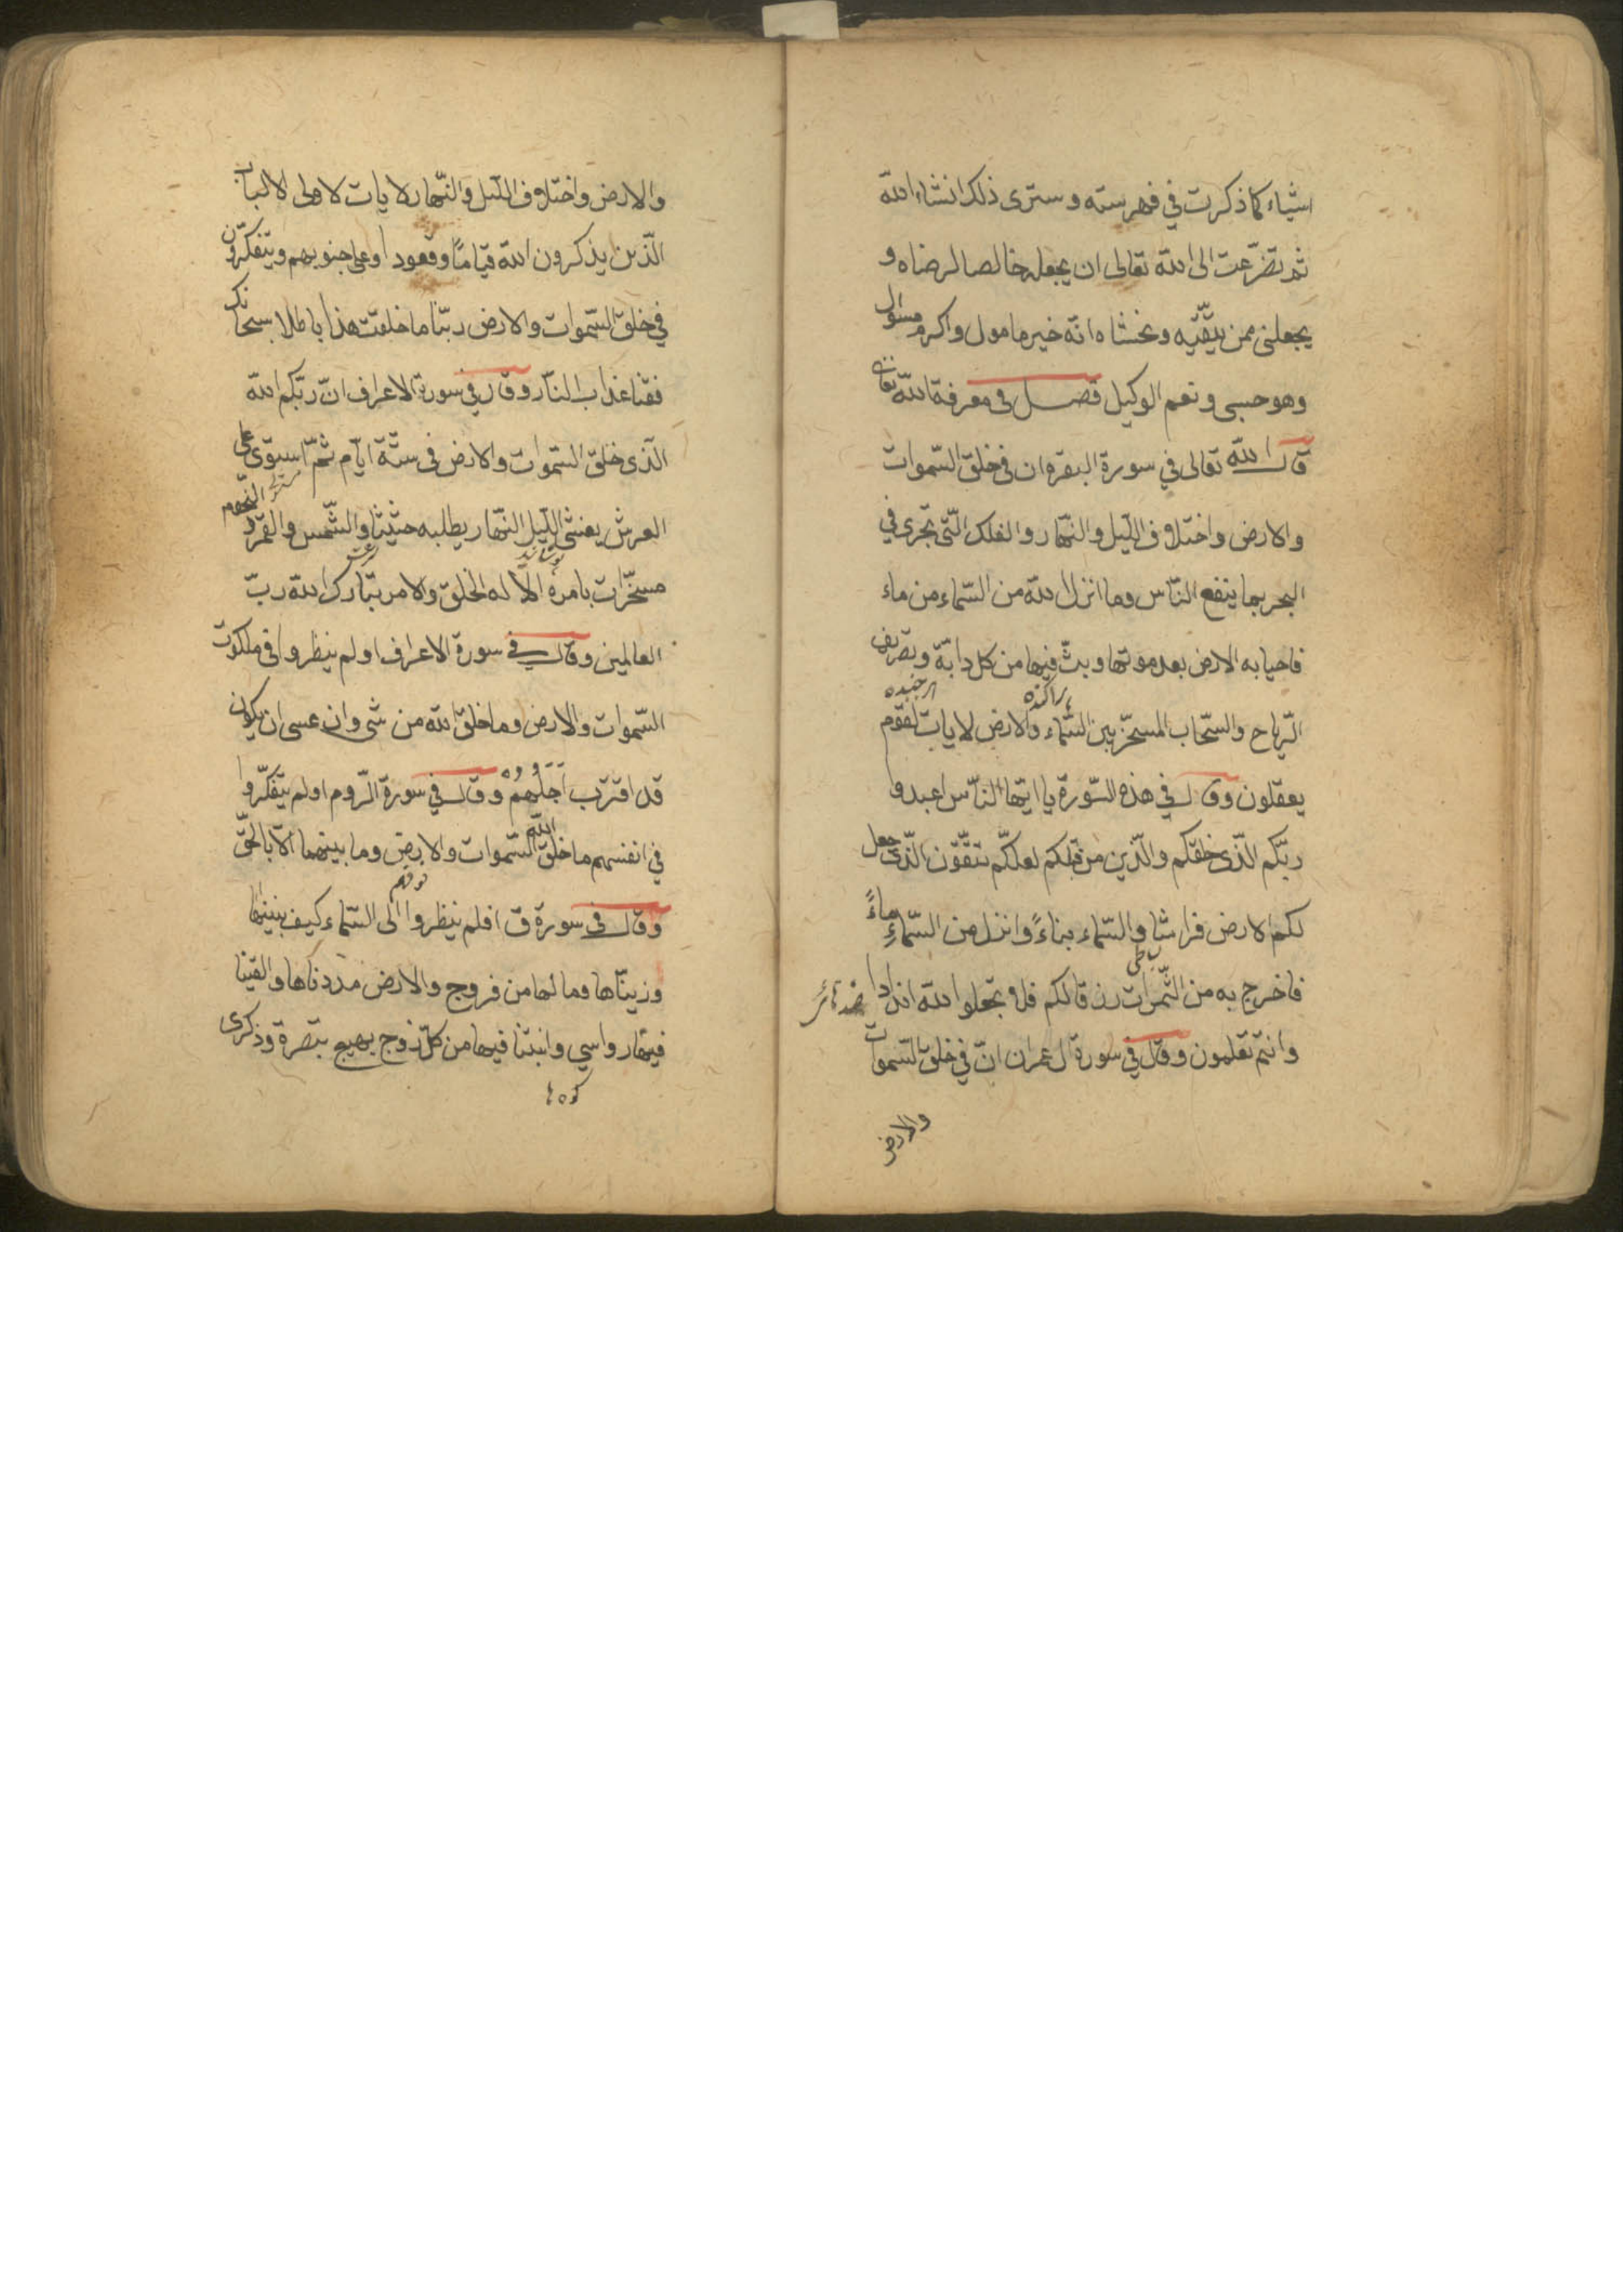 اشياء كما ذكرت في فهرسته وسترى ذلك انشاء الله
ثم تضرّعت الى الله تعالى ان يجعله خالصا لرضاه و
يجعلنى ممن يتّقيه ويخشاه انّه خير مامول واكرم مسئول
وهو حسبى ونعم الوكيل فصل فى معرفة الله تعالى
قال الله تعالى في سورة البقره ان فى خلق السّموات
والارض واختلاف اللّيل والنّهار والفلك الّتى تجرى في
البحر بما ينفع النّاس وما انزل الله من السّماء من ماء
فاحيا به الارض بعد موتها وبثّ فيها من كل دابّة وتصريف
پراكنده
هر جنبنده
الرّياح والسّحاب المسخّر بين السّماء والارض لايات لقوم
يعقلون وقال في هذه السّورة يا ايّها النّاس اعبدوا
ربّكم الّذى خلقكم والّذين من قبلكم لعلكّم تتّقون الّذى جعل
لكم الارض فراشا والسّماء بناءً وانزل من السّماءِ ماءً
فاخرج به من الثّمرات رزقا لكم فلا تجعلوا لله اندادا
وانتم تعلمون وقال في سورة ال عمران انّ في خلق السّموات
والارض
والارض واختلاف اللّيل والنّهار لايات لاولى الالباب
الّذين يذكرون الله قيامًا وقعودا وعلى جنوبهم ويتفكّرون
في خلق السّموات والارض ربّنا ما خلقت هذا باطلا سبحانك
فقنا عذاب النّار وقال في سورة الاعراف انّ ربّكم الله
الّذى خلق السّموات والارض فى ستّة ايّام ثمّ استوى على
العرش يغشى اللّيل النّهار يطلبه حثيثا والشّمس والقمر والنّجوم
مسخّرات بامره الا له الخلق والامر تبارك الله ربّ
العالمين وقال في سورة الاعراف اولم ينظروا فى ملكوت
السّموات والارض وما خلق الله من شى وان عسى ان يكون
قد اقترب اَجَلُهُمْ وقال في سورة الرّوم اولم يتفكّروا
في انفسهم ما خلق الله السّموات والارض وما بينهما الّا بالحقّ
وقال فى سورة ق افلم ينظروا الى السّماء فوقهم كيف بنيناها
وزينّاها وما لها من فروج والارض مددناها والقينا
فيها رواسي وانبتنا فيها من كلّ زوج بهيج تبصرة وذكرى
كوه ها